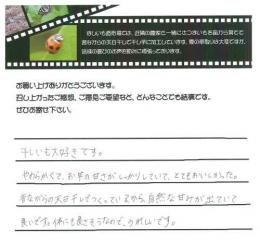 お買い上げありがとうございます。
召し上がったご感想、ご意見ご要望など、どんなことでも結構です。
ぜひお寄せ下さい。
干しいも大好きです。
やわらかくて、お芋の甘さがしっかりしていて、とてもおいしかった。
昔ながらの天日干しでつくっているから、自然な甘みが出ていて
良いです。体にも良さそうなので、うれしいです。